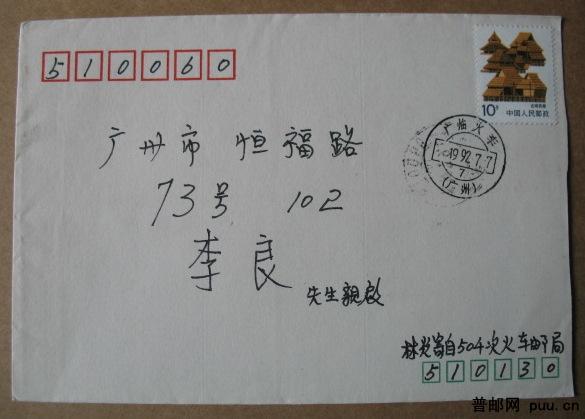 510060
10分
中国人民邮政
广临火车
1992.7.7
7
(广州)
广州市 恒福路
73号 102
李良
先生親啟
寄自504次火车邮局
510130
普邮网 puu.cn